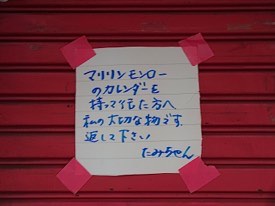 マリリンモンロー
のカレンダーを
持って行た方へ
私の大切な物です
返して下さい
たみちゃん